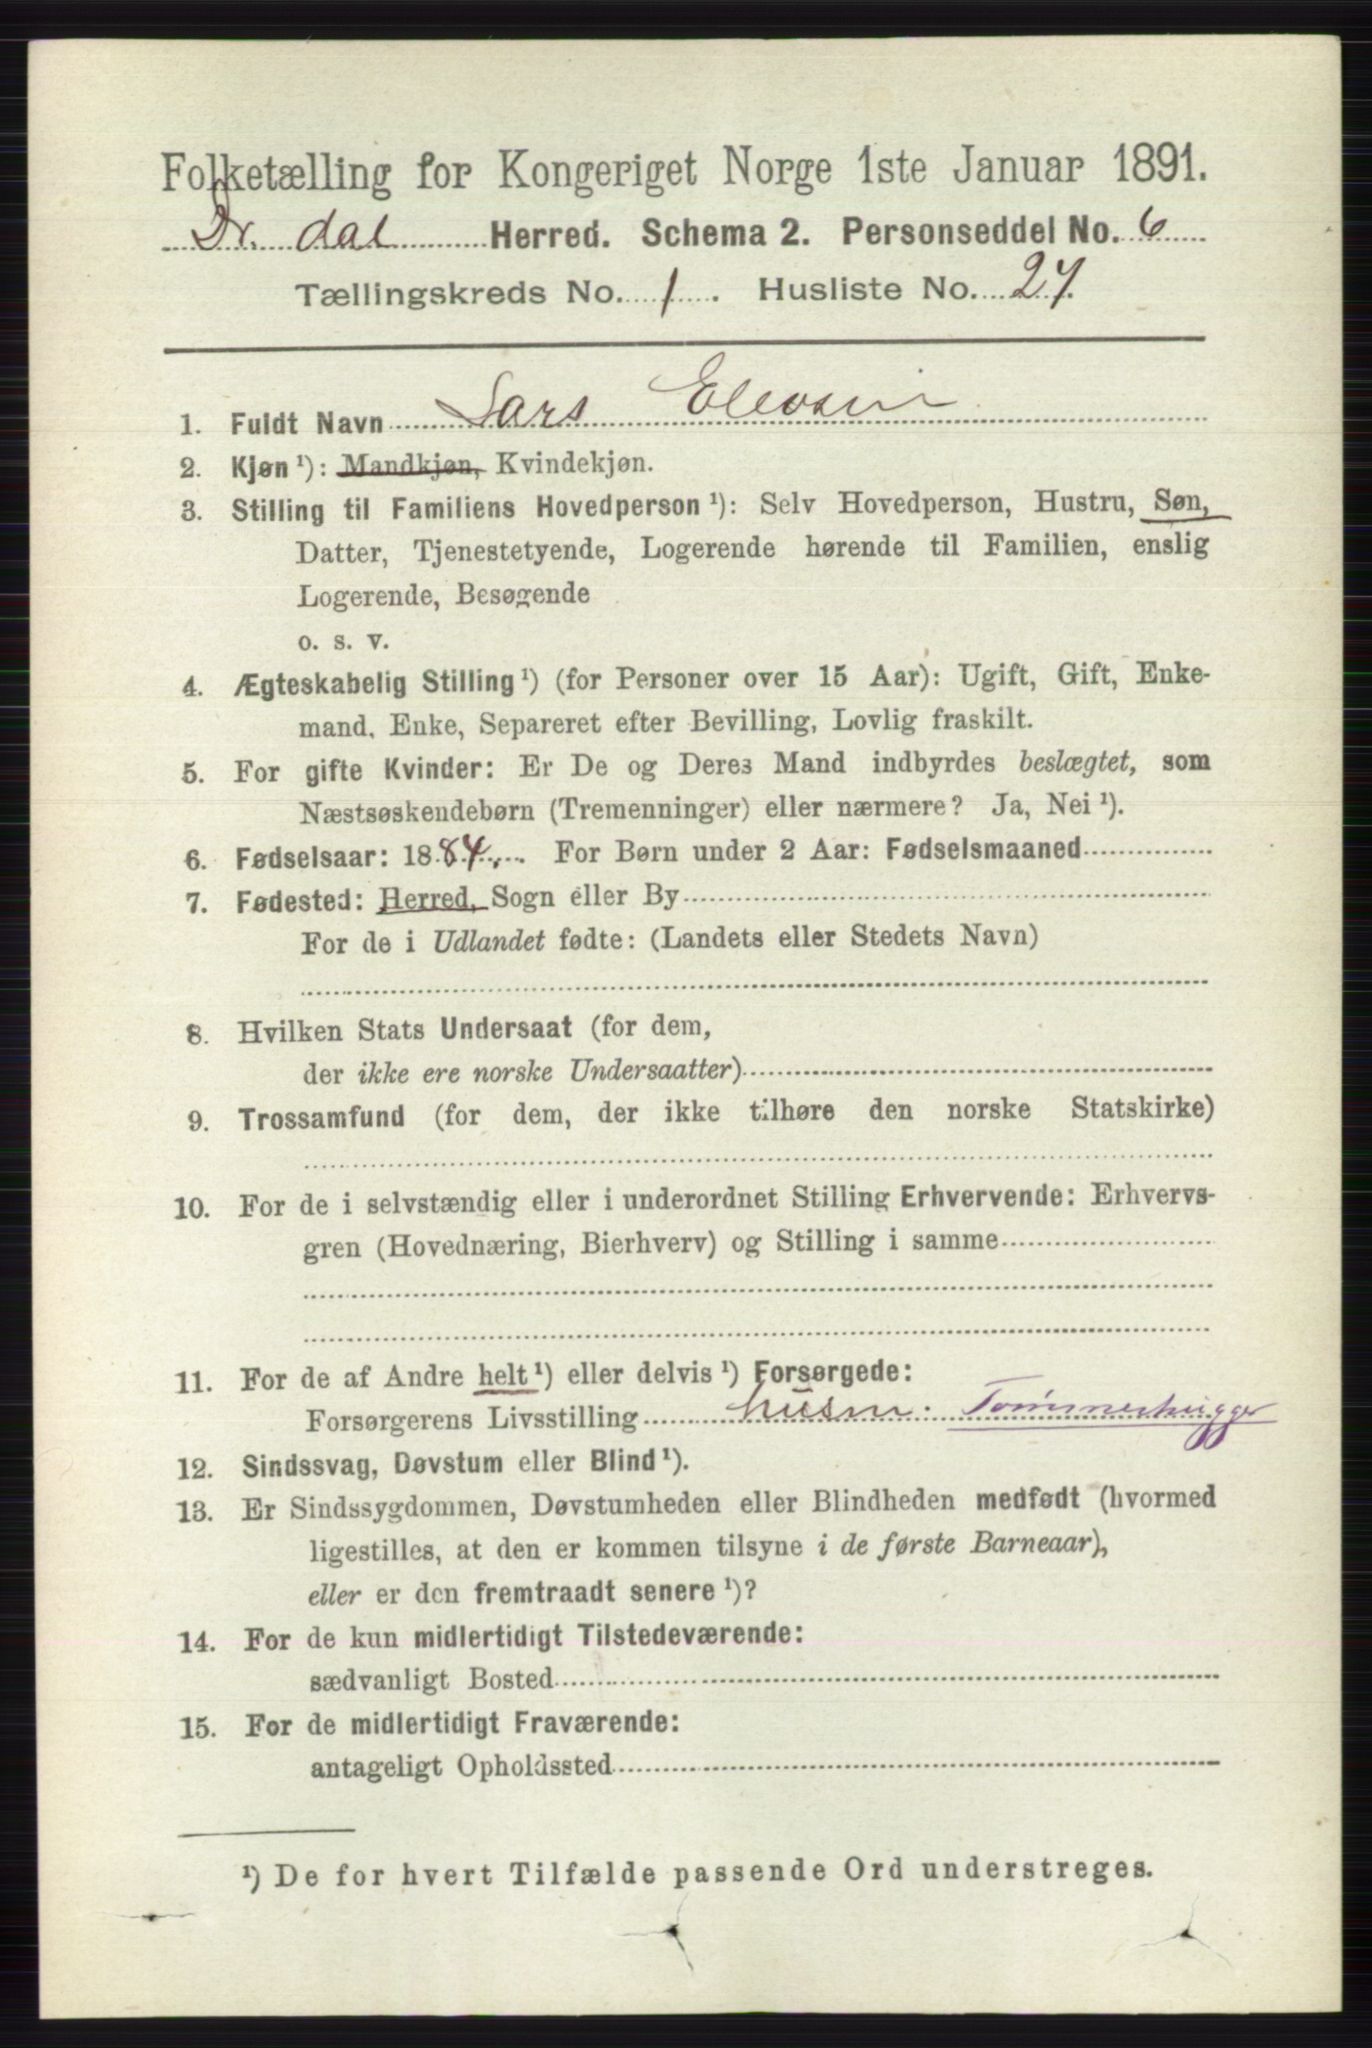 Folketælling for Kongeriget Norge 1ste Januar 1891.
Dr. dal Herred. Schema 2. Personseddel No. 6
Tællingskreds No. 1. Husliste No. 27.
1. Fuldt Navn Lars
2. Kjøn ¹): Mandkjøn, Kvindekjøn.
3. Stilling til Familiens Hovedperson ¹): Selv Hovedperson, Hustru, Søn,
Datter, Tjenestetyende, Logerende hørende til Familien, enslig
Logerende, Besøgende
o. s. v.
4. Ægteskabelig Stilling ¹) (for Personer over 15 Aar): Ugift, Gift, Enke-
mand, Enke, Separeret efter Bevilling, Lovlig fraskilt.
5. For gifte Kvinder: Er De og Deres Mand indbyrdes beslægtet, som
Næstsøskendebørn (Tremenninger) eller nærmere? Ja, Nei ¹).
6. Fødselsaar: 1884. For Børn under 2 Aar: Fødselsmaaned
7. Fødested: Herred, Sogn eller By
For de i Udlandet fødte: (Landets eller Stedets Navn)
8. Hvilken Stats Undersaat (for dem,
der ikke ere norske Undersaatter)
9. Trossamfund (for dem, der ikke tilhøre den norske Statskirke)
10. For de i selvstændig eller i underordnet Stilling Erhvervende: Erhvervs-
gren (Hovednæring, Bierhverv) og Stilling i samme
11. For de af Andre helt ¹) eller delvis ¹) Forsørgede:
Forsørgerens Livsstilling husm. Tømmerhugger
12. Sindssvag, Døvstum eller Blind ¹).
13. Er Sindssygdommen, Døvstumheden eller Blindheden medfødt (hvormed
ligestilles, at den er kommen tilsyne i de første Barneaar),
eller er den fremtraadt senere ¹)?
14. For de kun midlertidigt Tilstedeværende:
sædvanligt Bosted
15. For de midlertidigt Fraværende:
antageligt Opholdssted
¹) De for hvert Tilfælde passende Ord understreges.